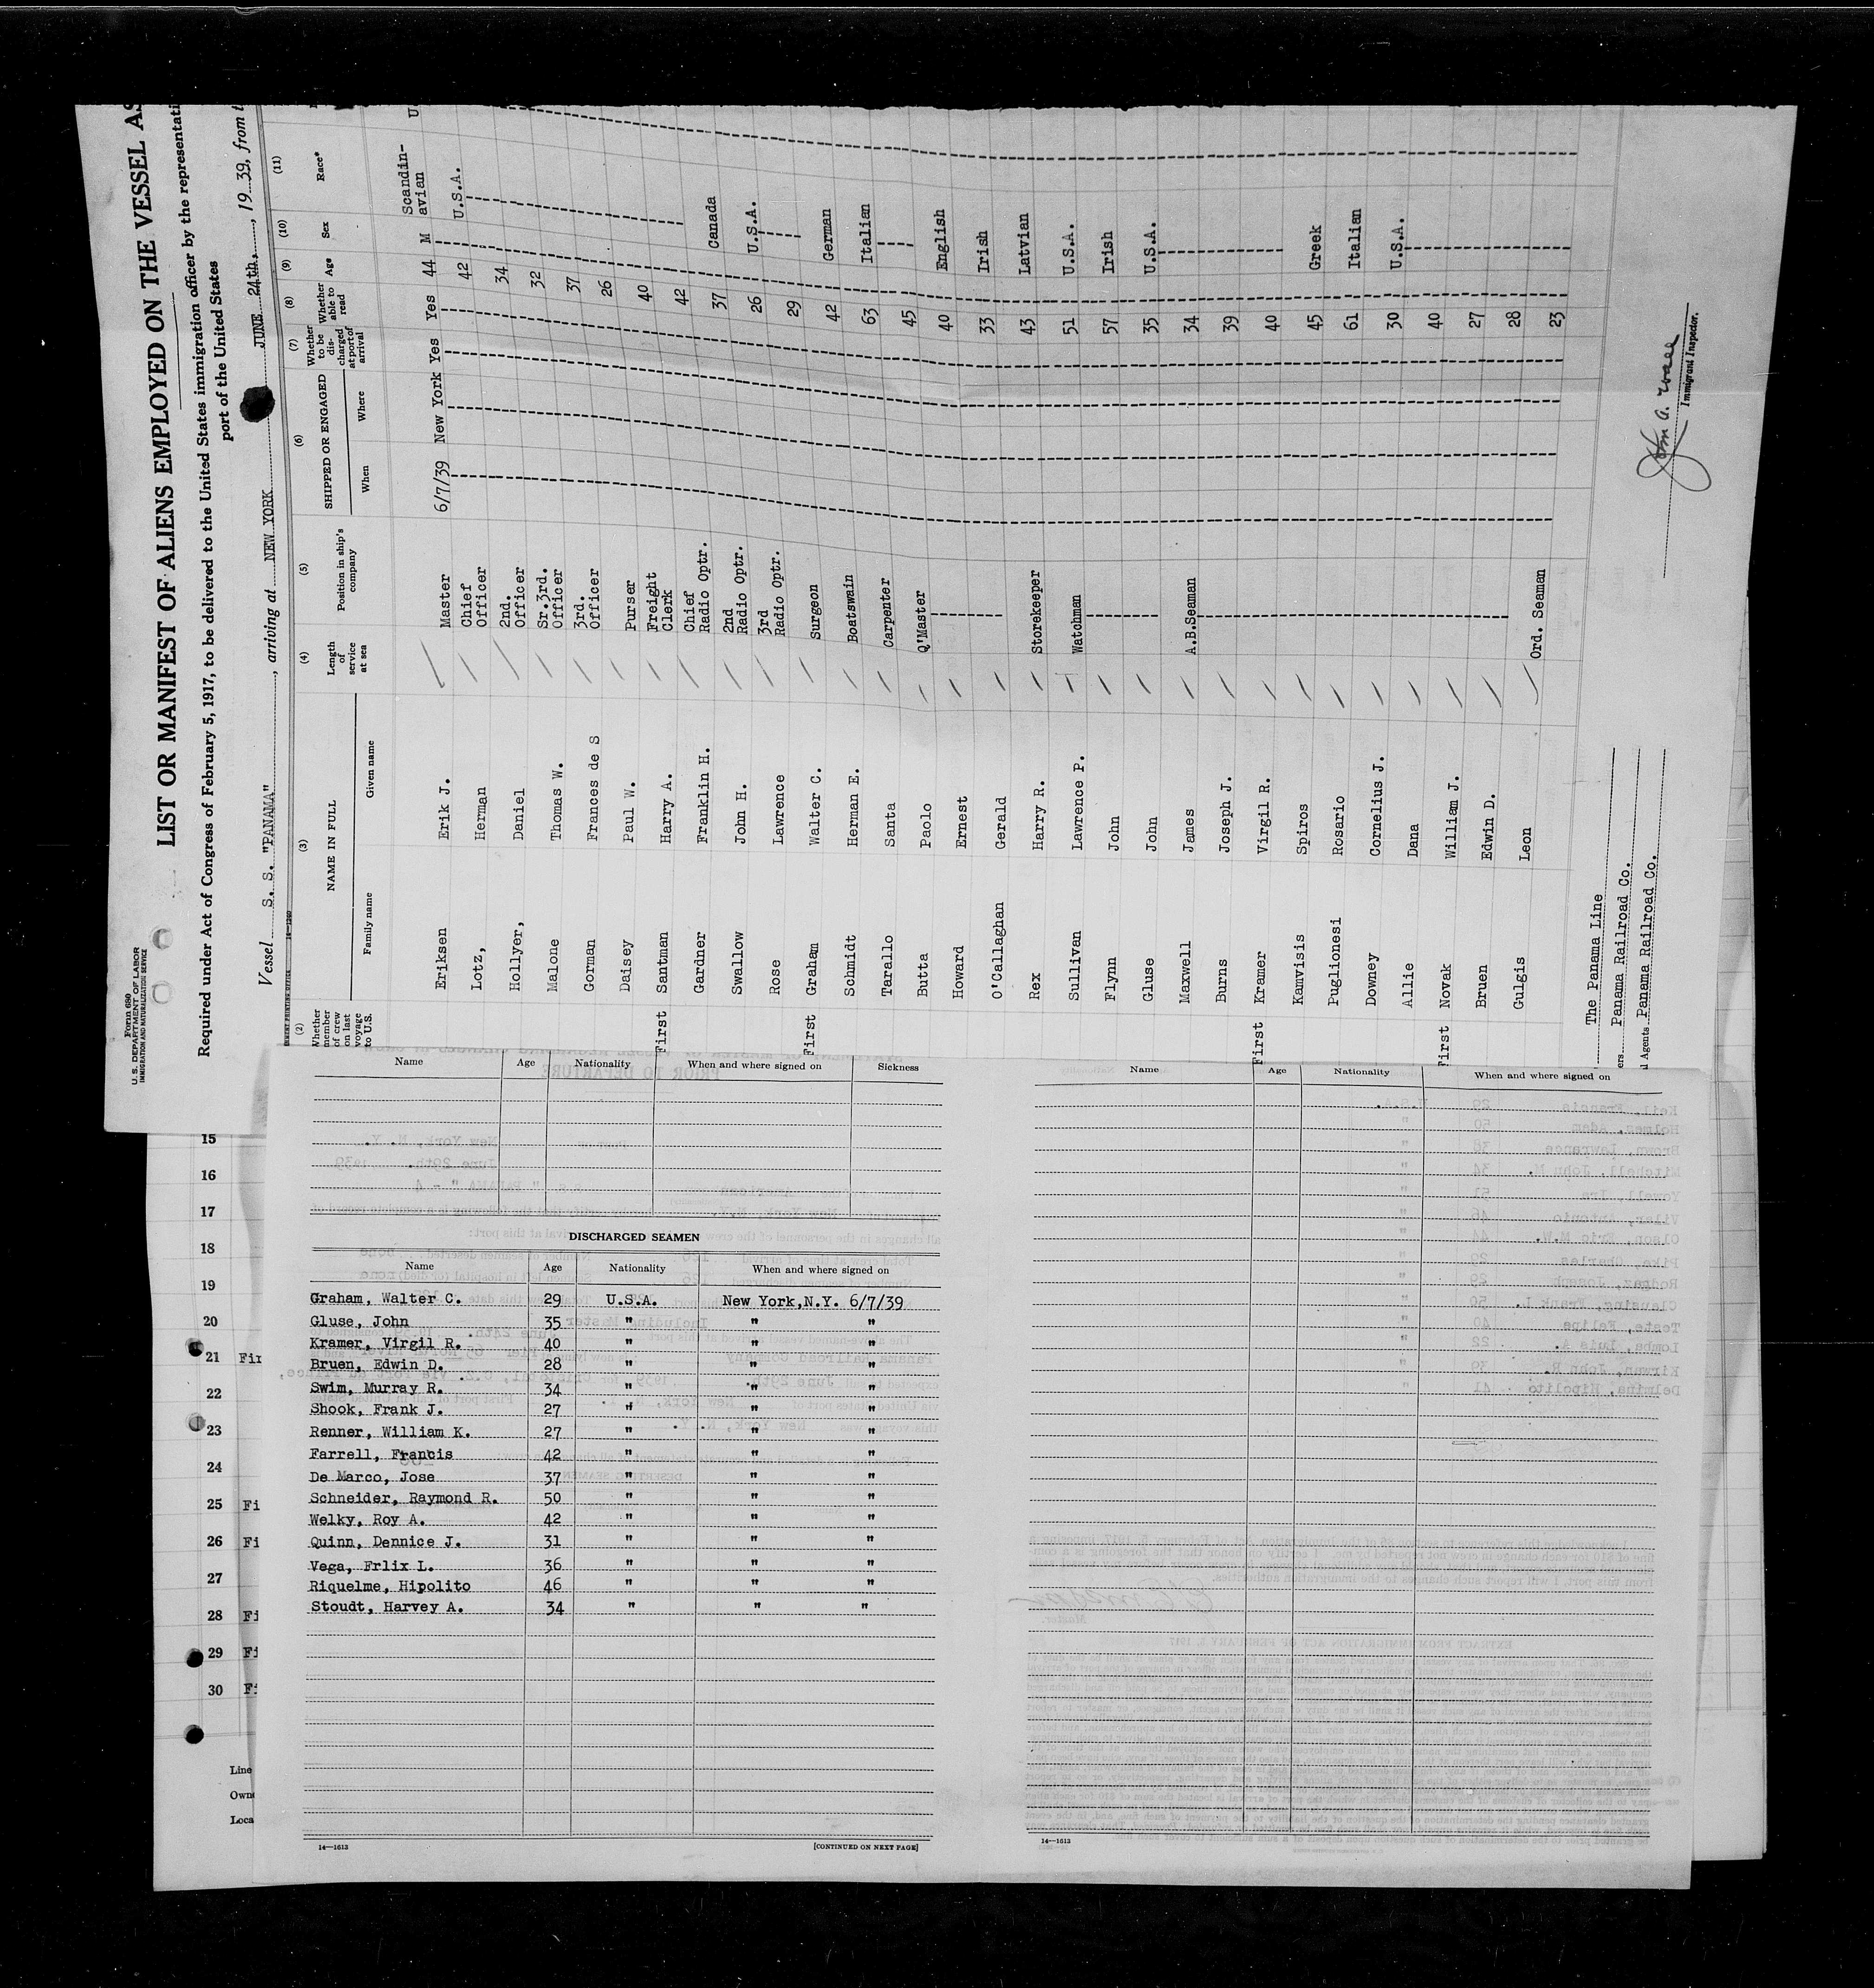 Form 680
U. S. DEPARTMENT OF LABOR
IMMIGRATION AND NATURALIZATION SERVICE
LIST OR MANIFEST OF ALIENS EMPLOYED ON THE VESSEL AS
Required under Act of Congress of February 5, 1917, to be delivered to the United States immigration officer by the representati
port of the United States
Vessel S. S. "PANAMA", arriving at NEW YORK JUNE 24th., 1939, from t
(2) (3) (4) (5) (6) (7) (8) (9) (10) (11)
Whether member of crew on last voyage to U.S. NAME IN FULL Length of service at sea Position in ship's company SHIPPED OR ENGAGED Whether to be discharged at port of arrival Whether able to read Age Sex Race*
Family name Given name When Where
Eriksen Erik J. Master 6/7/39 New York Yes Yes 44 M Scandin-avian U
Lotz, Herman Chief Officer 42 U.S.A.
Hollyer, Daniel 2nd. Officer 34
Malone Thomas W. Sr.3rd. Officer 32
Gorman Frances de S 3rd. Officer 37
Daisey Paul W. Purser 26
First Santman Harry A. Freight Clerk 40
Gardner Franklin H. Chief Radio Optr. 42
Swallow John H. 2nd Radio Optr. 37 Canada
Rose Lawrence 3rd Radio Optr. 26 U.S.A.
First Graham Walter C. Surgeon 29
Schmidt Herman E. Boatswain 42 German
Tarallo Santa Carpenter 63 Italian
Butta Paolo Q'Master 45
Howard Ernest 40 English
O'Callaghan Gerald 33 Irish
Rex Harry R. Storekeeper 43 Latvian
Sullivan Lawrence P. Watchman 51 U.S.A.
Flynn John 57 Irish
Gluse John 35 U.S.A.
Maxwell James A.B.Seaman 34
Burns Joseph J. 39
First Kramer Virgil R. 40
Kamvisis Spiros 45 Greek
Puglionesi Rosario 61 Italian
Downey Cornelius J. 30 U.S.A.
Allie Dana 40
First Novak William J. 27
Bruen Edwin D. 28
Gulgis Leon Ord. Seaman 23
The Panama Line
ers Panama Railroad Co.
l Agents Panama Railroad Co.
Immigrant Inspector.
15
16
17
18
19
20
21 Fir
22
23
24
25 Fi
26 Fi
27
28 Fi
29 Fi
30 Fi
Line
Own
Loca
Name Age Nationality When and where signed on Sickness
DISCHARGED SEAMEN
Name Age Nationality When and where signed on
Graham, Walter C. 29 U.S.A. New York,N.Y. 6/7/39
Gluse, John 35 " " "
Kramer, Virgil R. 40 " " "
Bruen, Edwin D. 28 " " "
Swim, Murray R. 34 " " "
Shook, Frank J. 27 " " "
Renner, William K. 27 " " "
Farrell, Francis 42 " " "
De Marco, Jose 37 " " "
Schneider, Raymond R. 50 " " "
Welky, Roy A. 42 " " "
Quinn, Dennice J. 31 " " "
Vega, Frlix L. 36 " " "
Riquelme, Hipolito 46 " " "
Stoudt, Harvey A. 34 " " "
14—1613 [CONTINUED ON NEXT PAGE]
Name Age Nationality When and where signed on
14—1613